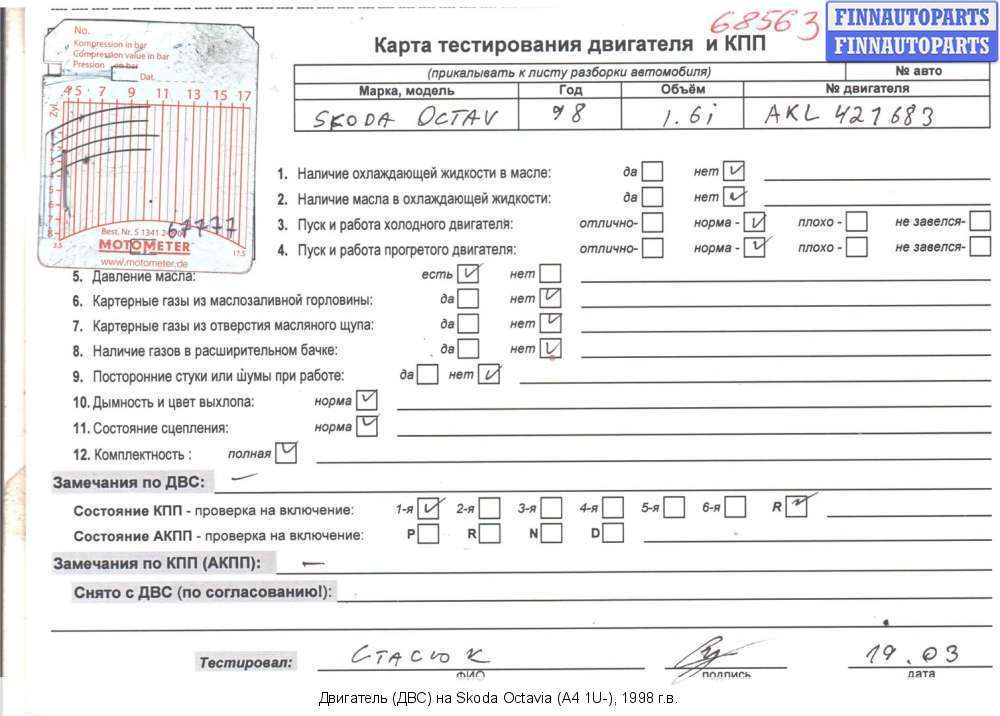 68563
FINNAUTOPARTS
FINNAUTOPARTS
No.
Kompression in bar
Compression value in bar
Pression en bar
Dat.
4 5 7 9 11 13 15 17
Zyl.
Best. Nr. S 1341
67777
MOTOMETER
www.motometer.de
3.5 17.5
Карта тестирования двигателя и КПП
(прикалывать к листу разборки автомобиля) № авто
Марка, модель Год Объём № двигателя
SKODA OCTAV 98 1.6i AKL 421683
1. Наличие охлаждающей жидкости в масле: да нет
2. Наличие масла в охлаждающей жидкости: да нет
3. Пуск и работа холодного двигателя: отлично- норма - плохо - не завелся-
4. Пуск и работа прогретого двигателя: отлично- норма - плохо - не завелся-
5. Давление масла: есть нет
6. Картерные газы из маслозаливной горловины: да нет
7. Картерные газы из отверстия масляного щупа: да нет
8. Наличие газов в расширительном бачке: да нет
9. Посторонние стуки или шумы при работе: да нет
10. Дымность и цвет выхлопа: норма
11. Состояние сцепления: норма
12. Комплектность : полная
Замечания по ДВС: —
Состояние КПП - проверка на включение: 1-я 2-я 3-я 4-я 5-я 6-я R
Состояние АКПП - проверка на включение: P R N D
Замечания по КПП (АКПП): —
Снято с ДВС (по согласованию!):
Тестировал: Стасюк 19.03
ФИО подпись дата
Двигатель (ДВС) на Skoda Octavia (A4 1U-), 1998 г.в.